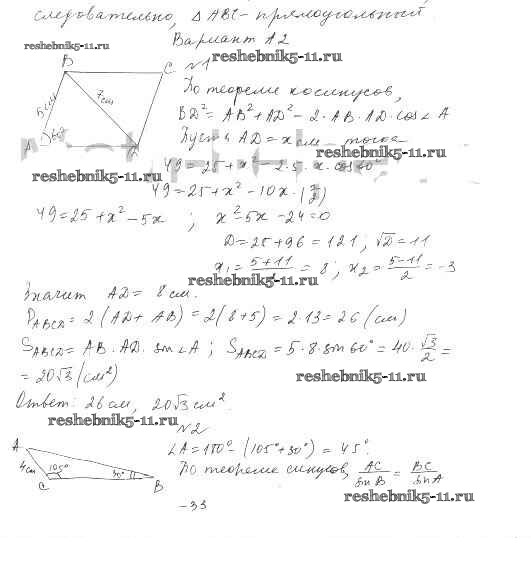 следовательно, Δ ABC - прямоугольный.
Вариант A2
reshebnik5-11.ru
reshebnik5-11.ru
№1
B
C
По теореме косинусов,
5 см
7 см
BD² = AB² + AD² - 2·AB·AD·cos∠A
A
60°
Пусть AD = x см, тогда
reshebnik5-11.ru
49 = 25 + x² - 2·5·x·cos 60°
reshebnik5-11.ru
49 = 25 + x² - 10x·(½)
49 = 25 + x² - 5x ; x² - 5x - 24 = 0
D = 25 + 96 = 121; √D = 11
x₁ = (5+11)/2 = 8 ; x₂ = (5-11)/2 = -3
reshebnik5-11.ru
Значит AD = 8 см.
P_ABCD = 2(AD + AB) = 2(8+5) = 2·13 = 26 (см)
S_ABCD = AB·AD·sin∠A ; S_ABCD = 5·8·sin 60° = 40·√3/2 =
= 20√3 (см²)
reshebnik5-11.ru
Ответ: 26 см, 20√3 см².
reshebnik5-11.ru
№2
A
∠A = 180° - (105° + 30°) = 45°.
4 см
105°
30°
C
B
По теореме синусов, AC/sin B = BC/sin A
reshebnik5-11.ru
-33